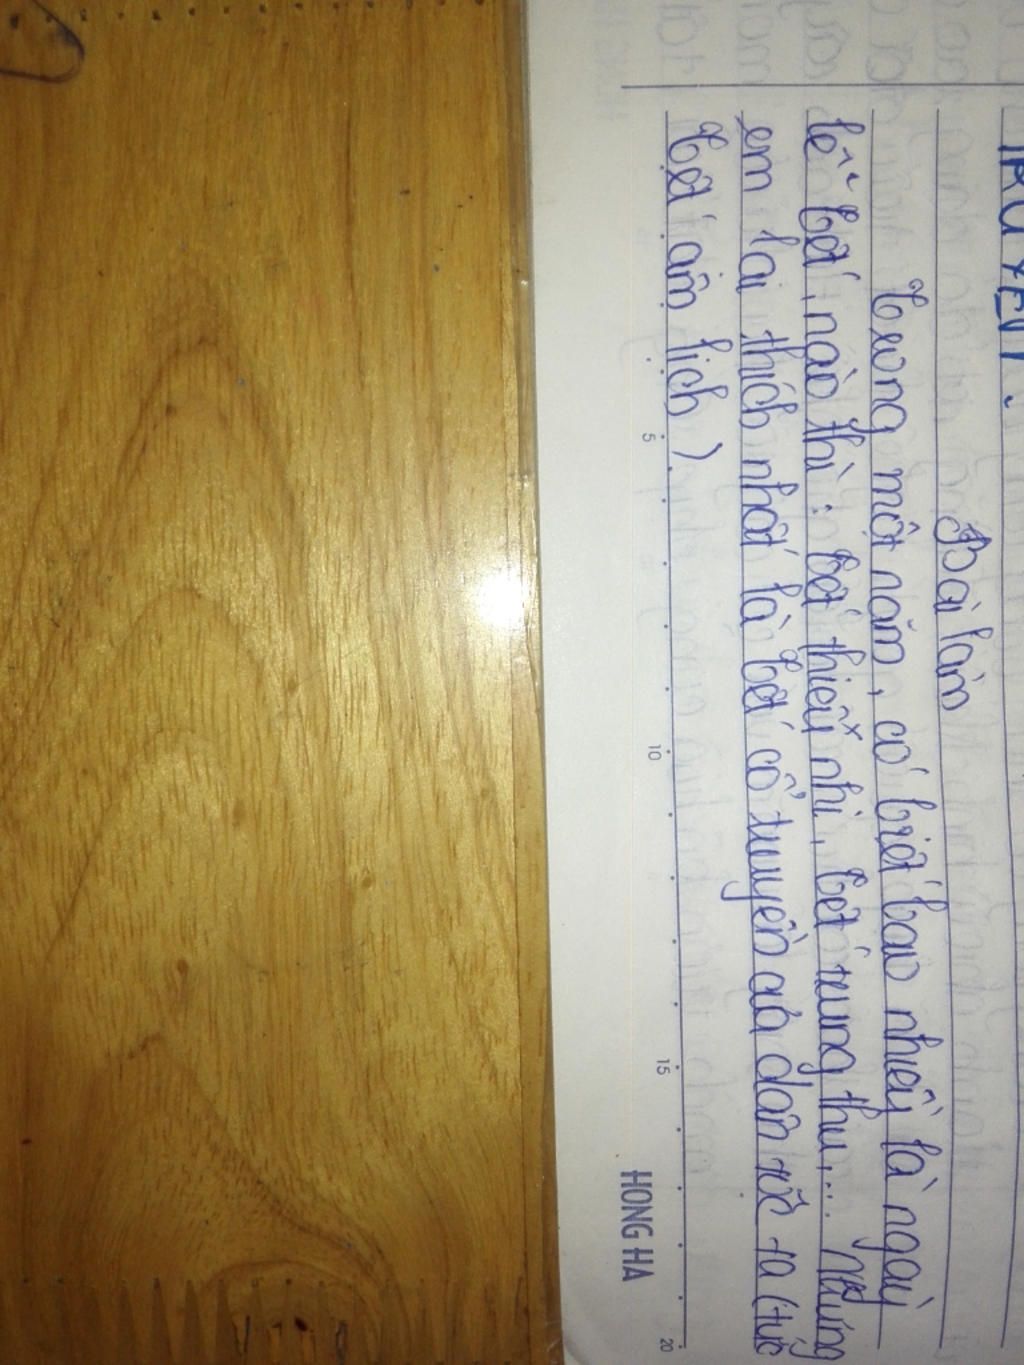 TRUYỀN
Bài làm
Trong một năm, có biết bao nhiêu là ngày
lễ tết, nào thì: tết thiếu nhi, tết trung thu,... Nhưng
em lại thích nhất là tết cổ truyền của dân tộc ta (tức
tết âm lịch)
5 10 15 20
HONG HA